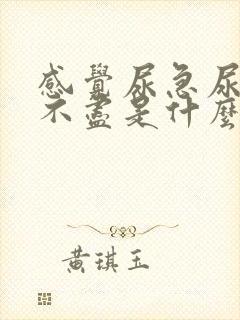 感覺尿急尿
不盡是什麼
黃琪玉